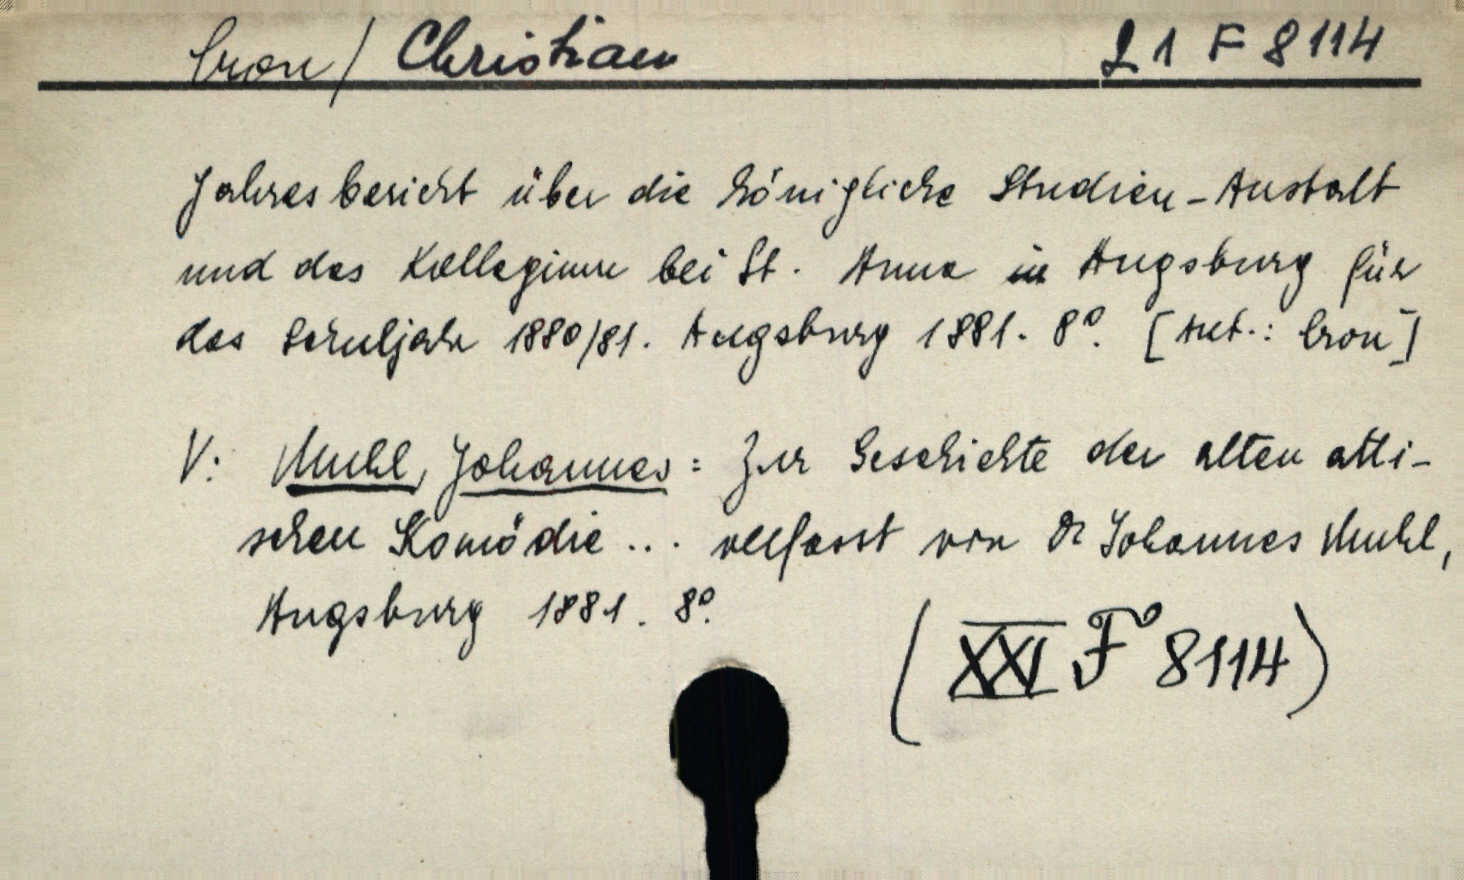 Cron/ Christian 21 F 8114
Jahresbericht über die Königliche Studien-Anstalt
und das Kollegium bei St. Anna in Augsburg für
das Schuljahr 1880/81. Augsburg 1881. 8°. [Aut.: Cron]
V: Muhl, Johannes: Zur Geschichte der alten atti-
schen Komödie ... verfasst von Dr Johannes Muhl,
Augsburg 1881. 8°.
(XXI F° 8114)